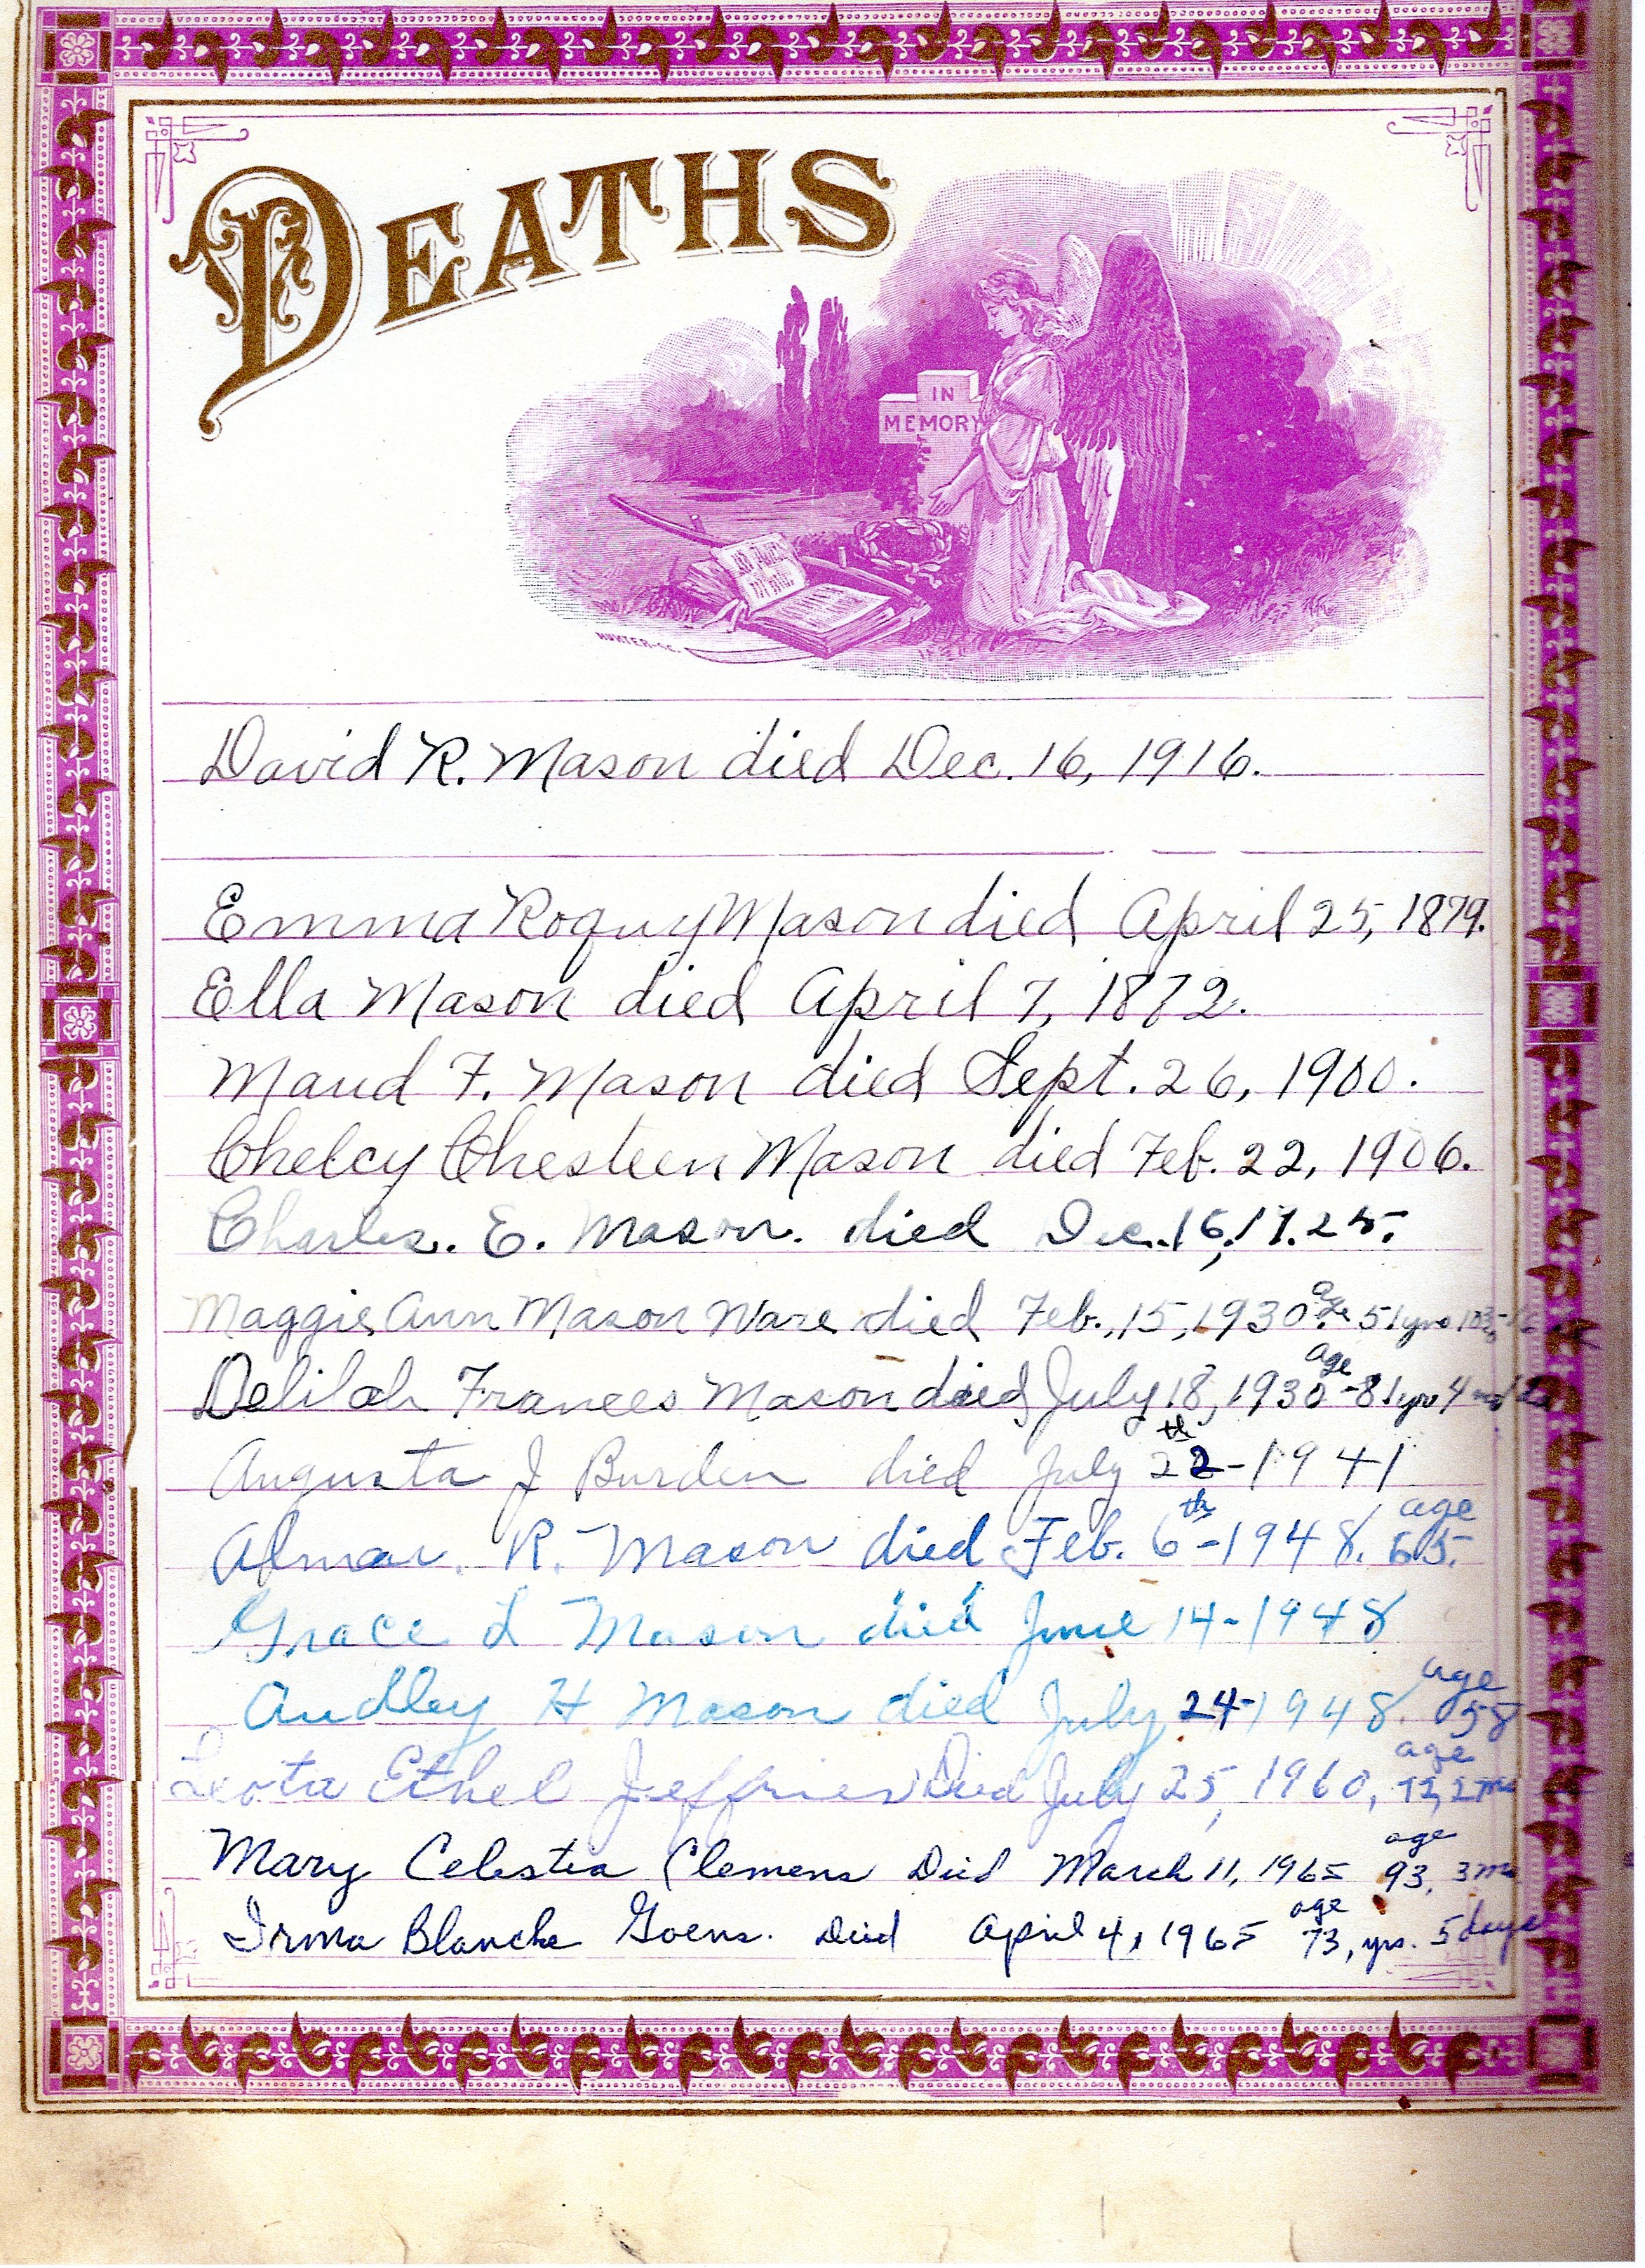 DEATHS
IN
MEMORY
HUNTER-SC.
David R. Mason died Dec. 16, 1916.
Emma Roquy Mason died April 25, 1879.
Ella Mason died April 7, 1872.
Maud F. Mason died Sept. 26, 1900.
Chelcy Chesteen Mason died Feb. 22, 1906.
Charles. E. Mason. died Dec. 16, 1925.
Maggie Ann Mason Ware died Feb., 15, 1930 age 51 yrs
Delilah Frances Mason died July 18, 1930 age - 81 yrs 4 mo
Augusta J Burden died July 22th - 1941
Almar. R. Mason died Feb. 6th - 1948. age 65.
Grace L Mason died June 14 - 1948
Audley H Mason died July 24 - 1948. age 58
Leota Ethel Jeffries Died July 25, 1960, age 72, 2 mo
Mary Celestia Clemens Died March 11, 1965 age 93, 3 mo
Irma Blanche Goens. Died April 4, 1965 age 73, yrs. 5 days